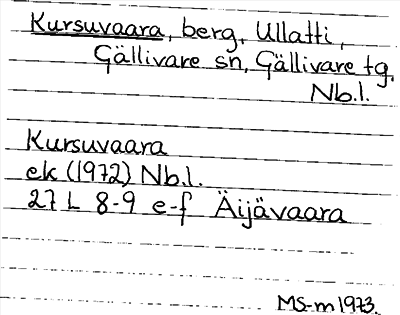 Kursuvaara, berg, Ullatti,
Gällivare sn, Gällivare tg.
Nb.l.
Kursuvaara
ek (1972) Nb.l.
27 L 8-9 e-f Äijävaara
MS-m 1973.